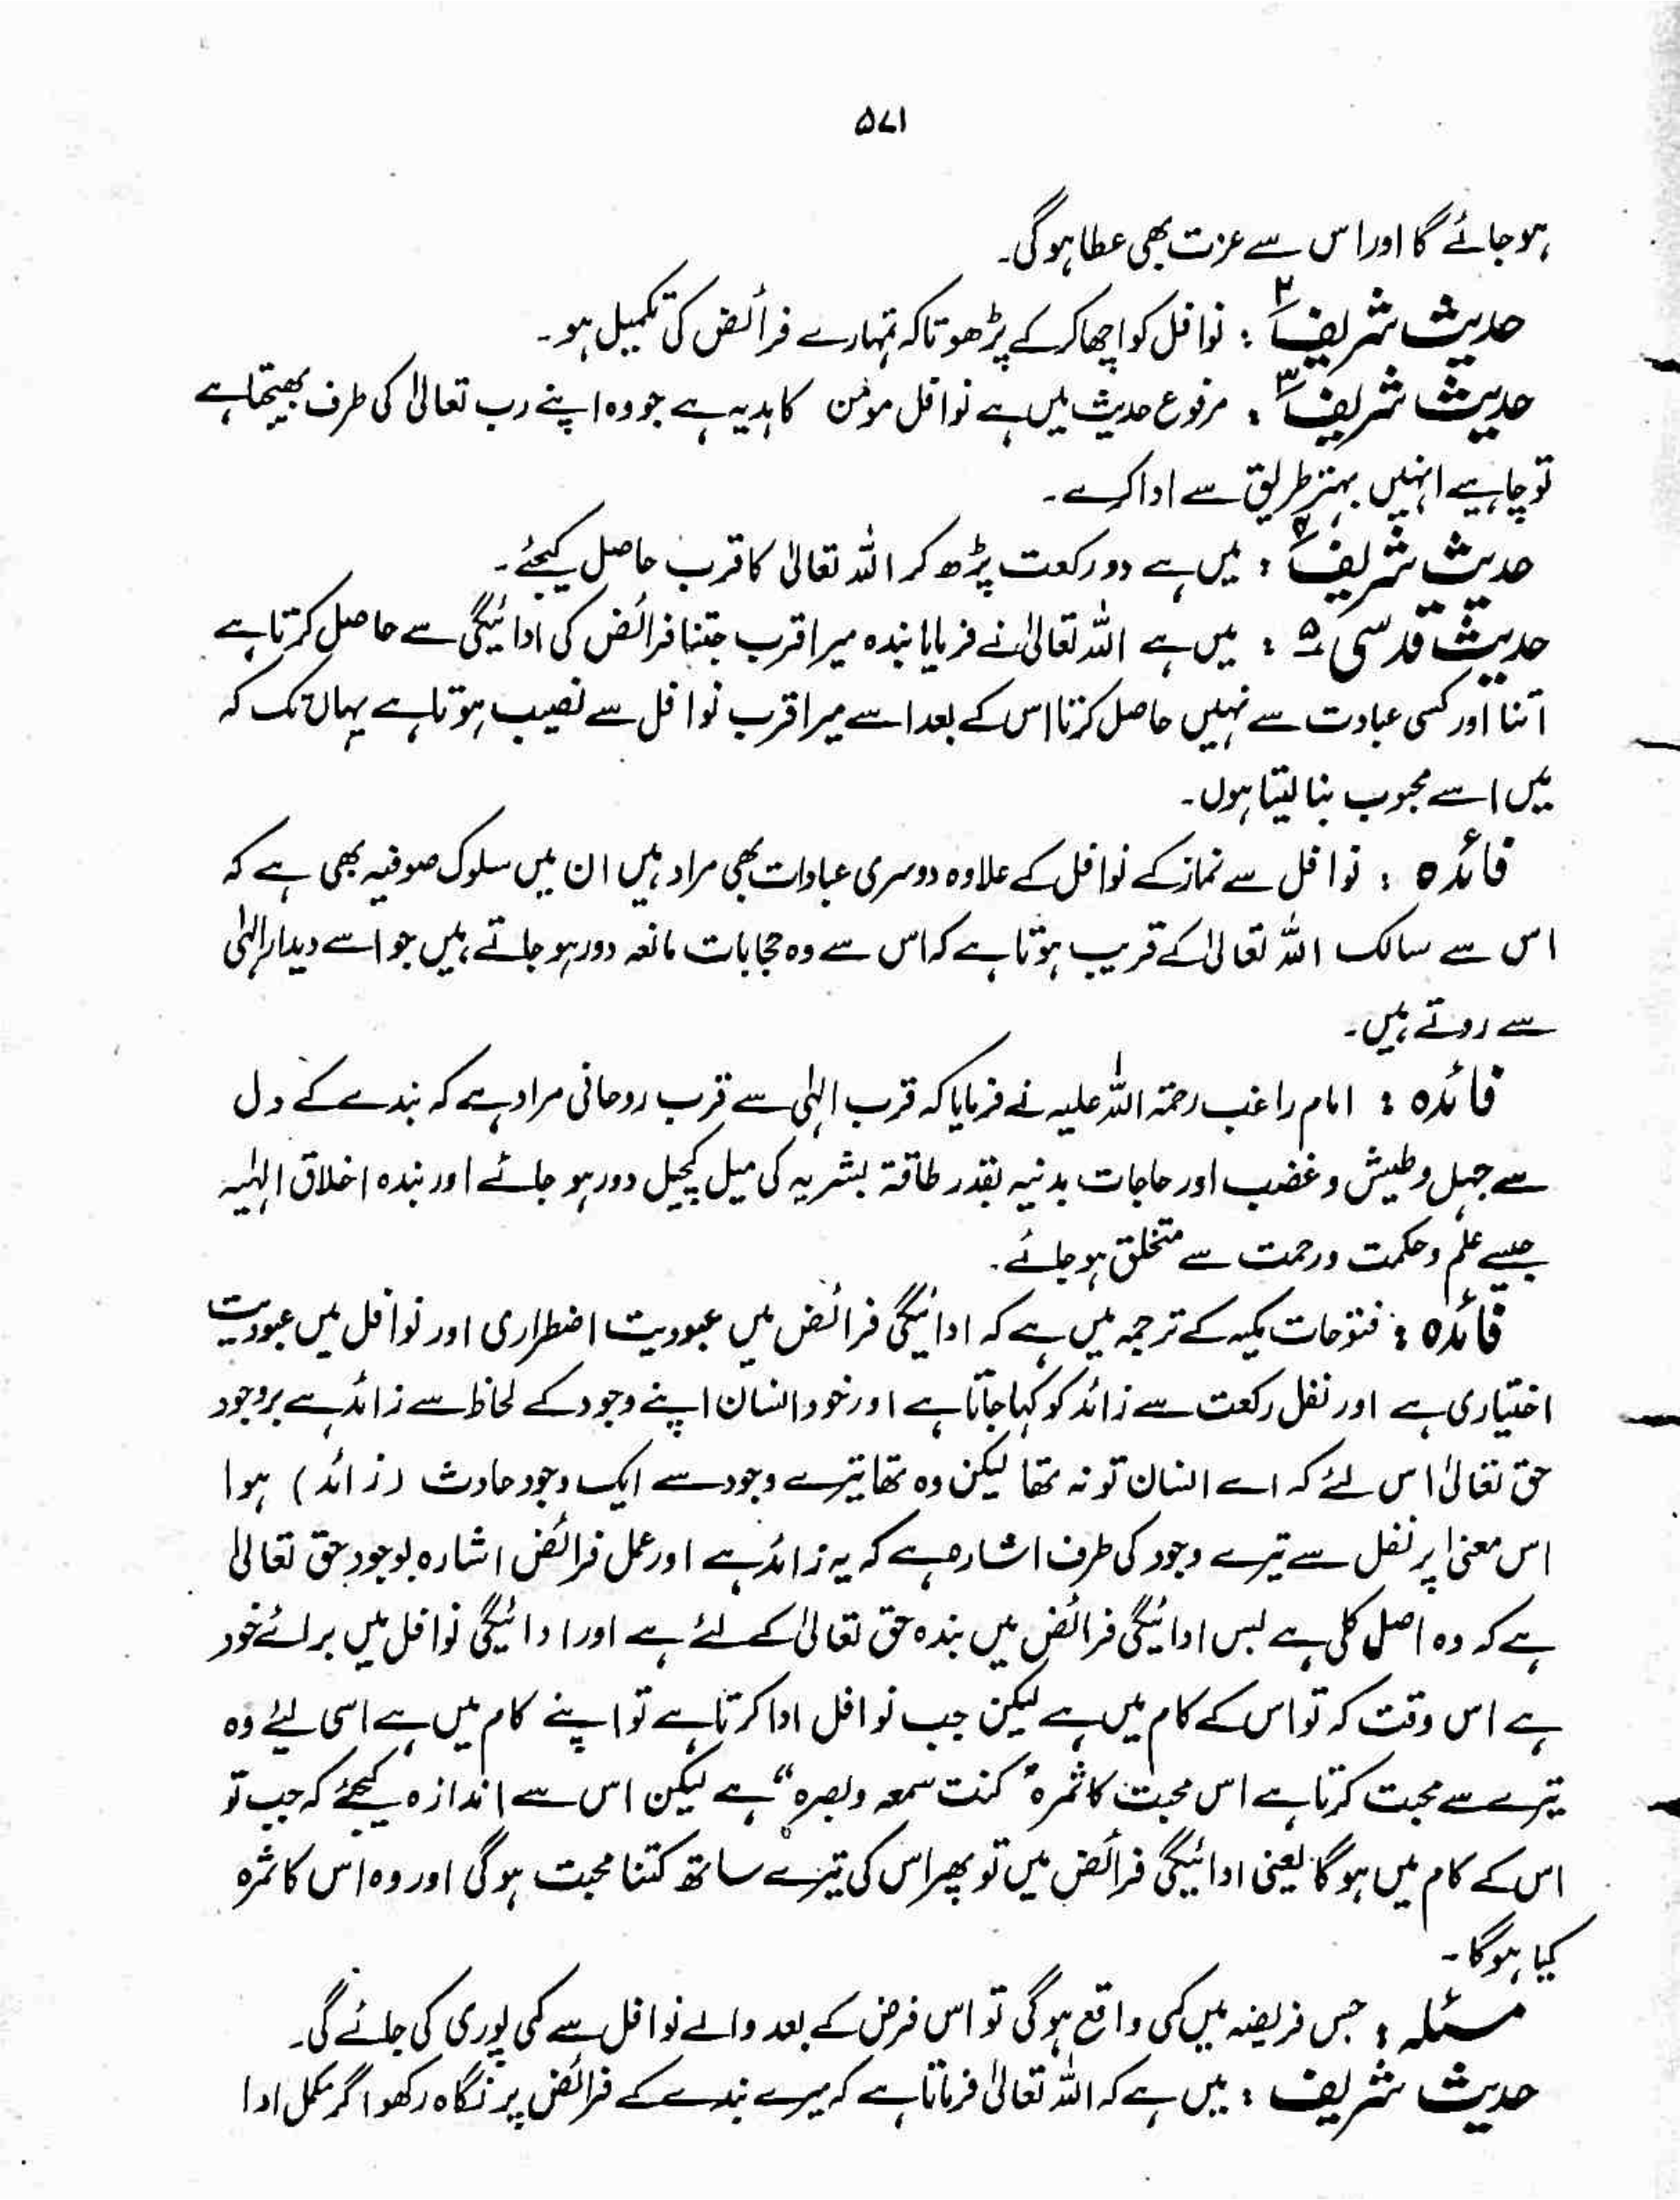 ۵۷۱
ہو جائے گا اور اس سے عزت بھی عطا ہو گی۔
حدیث شریف ۲ : نوافل کو اچھا کر کے پڑھو تاکہ تمہارے فرائض کی تکمیل ہو۔
حدیث شریف ۳ : مرفوع حدیث میں ہے نوافل مومن کا ہدیہ ہے جو وہ اپنے رب تعالیٰ کی طرف بھیجتا ہے
تو چاہیے انہیں بہتر طریق سے ادا کرے۔
حدیث شریف ۴ : میں ہے دو رکعت پڑھ کر اللہ تعالیٰ کا قرب حاصل کیجئے۔
حدیث قدسی ۵ : میں ہے اللہ تعالیٰ نے فرمایا بندہ میرا قرب جتنا فرائض کی ادائیگی سے حاصل کرتا ہے
اتنا اور کسی عبادت سے نہیں حاصل کرتا اس کے بعد اسے میرا قرب نوافل سے نصیب ہوتا ہے یہاں تک کہ
میں اسے محبوب بنا لیتا ہوں۔
فائدہ : نوافل سے نماز کے نوافل کے علاوہ دوسری عبادات بھی مراد ہیں ان میں سلوک صوفیہ بھی ہے کہ
اس سے سالک اللہ تعالیٰ کے قریب ہوتا ہے کہ اس سے وہ حجابات مانعہ دور ہو جاتے ہیں جو اسے دیدار الہٰی
سے روتے ہیں۔
فائدہ : امام راغب رحمۃ اللہ علیہ نے فرمایا کہ قرب الہٰی سے قرب روحانی مراد ہے کہ بندے کے دل
سے جہل و طیش و غضب اور حاجات بدنیہ بقدر طاقۃ بشریہ کی میل کچیل دور ہو جائے اور بندہ اخلاق الہٰیہ
جیسے علم و حکمت و رحمت سے متخلق ہو جائے۔
فائدہ : فتوحات مکیہ کے ترجمہ میں ہے کہ ادائیگی فرائض میں عبودیت اضطراری اور نوافل میں عبودیت
اختیاری ہے اور نفل رکعت سے زائد کو کہا جاتا ہے اور خود انسان اپنے وجود کے لحاظ سے زائد ہے بروجود
حق تعالیٰ اس لئے کہ اے انسان تو نہ تھا لیکن وہ تھا تیرے وجود سے ایک وجود حادث (زائد) ہوا
اس معنیٰ پر نفل سے تیرے وجود کی طرف اشارہ ہے کہ یہ زائد ہے اور عمل فرائض اشارہ بوجود حق تعالیٰ
ہے کہ وہ اصل کلی ہے بس ادائیگی فرائض میں بندہ حق تعالیٰ کے لئے ہے اور ادائیگی نوافل میں برائے خود
ہے اس وقت کہ تو اس کے کام میں ہے لیکن جب نوافل ادا کرتا ہے تو اپنے کام میں ہے اسی لیئے وہ
تیرے سے محبت کرتا ہے اس محبت کا ثمرہ "کنت سمعہ وبصرہ" ہے لیکن اس سے اندازہ کیجئے کہ جب تو
اس کے کام میں ہو گا یعنی ادائیگی فرائض میں تو پھر اس کی تیرے ساتھ کتنا محبت ہو گی اور وہ اس کا ثمرہ
کیا ہو گا۔
مسئلہ : جس فریضہ میں کمی واقع ہو گی تو اس فرض کے بعد والے نوافل سے کمی پوری کی جائے گی۔
حدیث شریف : میں ہے کہ اللہ تعالیٰ فرماتا ہے کہ میرے بندے کے فرائض پر نگاہ رکھو اگر مکمل ادا